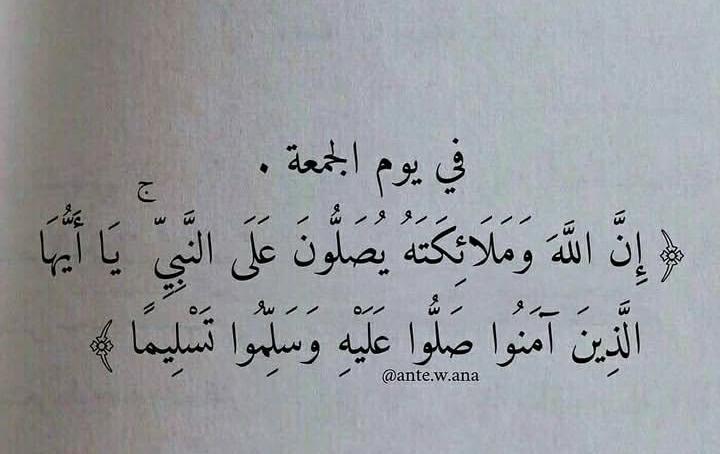 في يوم الجمعة .
﴿ إِنَّ اللَّهَ وَمَلَائِكَتَهُ يُصَلُّونَ عَلَى النَّبِيِّ ۚ يَا أَيُّهَا
الَّذِينَ آمَنُوا صَلُّوا عَلَيْهِ وَسَلِّمُوا تَسْلِيمًا ﴾
@ante.w.ana